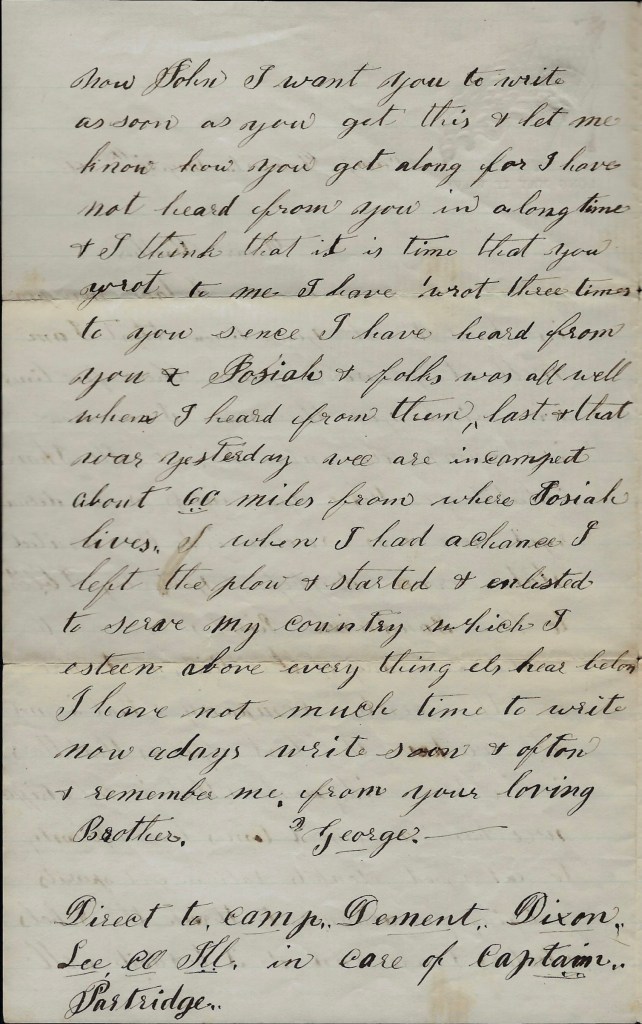 now John I want you to write
as soon as you get this & let me
know how you get along for I have
not heard from you in a long time
& I think that it is time that you
wrot to me I have wrot three times
to you sence I have heard from
you & Josiah & folks was all well
when I heard from them, last & that
was yesterday wee are incamped
about 60 miles from where Josiah
lives. when I had a chance I
left the plow & started & enlisted
to serve my country which I
esteen above every thing els hear below
I have not much time to write
now adays write soon & ofton
& remember me. from your loving
Brother. George.
Direct to, camp,. Dement,. Dixon,.
Lee, CO Ill. in care of Captain,.
Partridge,.